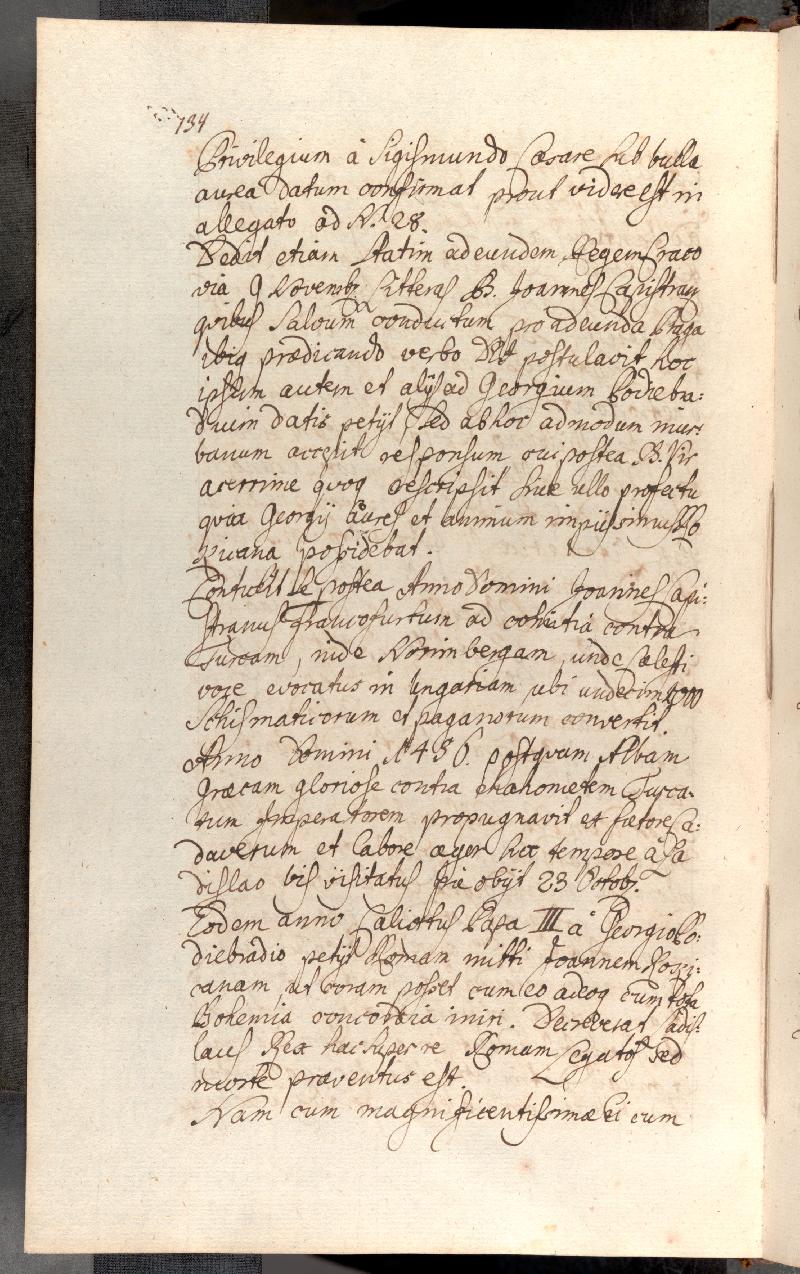 134
Privilegium à Sigismundo Cæsare sub bulla
aurea datum confirmat prout videre est in
allegato ad N. 28.
Dedit etiam statim ad eundem Regem Craco
via 9 Novembr Litteras B. Joannes Capistran
quibus salvum conductum pro adeunda Praga
ibiq prædicando verbo postulavit hoc
ipsum autem et alys ad Georgium Podiebra:
dium datis petyt, sed ab hoc admodum inur:
banum accepit responsum cui postea B. Vir
acerrime quoq rescripsit sine ullo profectu
quia Georgy aures et animum impyssimus Ro
zicana possidebat.
Contulit se postea Anno Domini Joannes Capi:
stranus Francofurtum ad comitia contra
Turcam, inde Norimbergam, unde cælesti
voce evocatus in Ungariam ubi undecim
Schismaticorum et paganorum convertit.
Anno Domini 1456. postquam Albam
Græcam gloriose contra Mahometem Turca:
rum Imperatorem propugnavit et fœtore Ca:
daverum et labore æger hoc tempore à La
dislao bis visitatus pie obyt 23 Octobr.
Eodem anno Calixtus Papa III à Georgio Po:
diebradio petyt Romam mitti Joannem Rozi:
canam, ut coram posset cum eo adeoq cum tota
Bohemia concordia iniri. Decreverat Ladis:
laus Rex hac super re Romam Legatos sed
morte præventus est.
Nam cum magnificentissimæ Ei cum